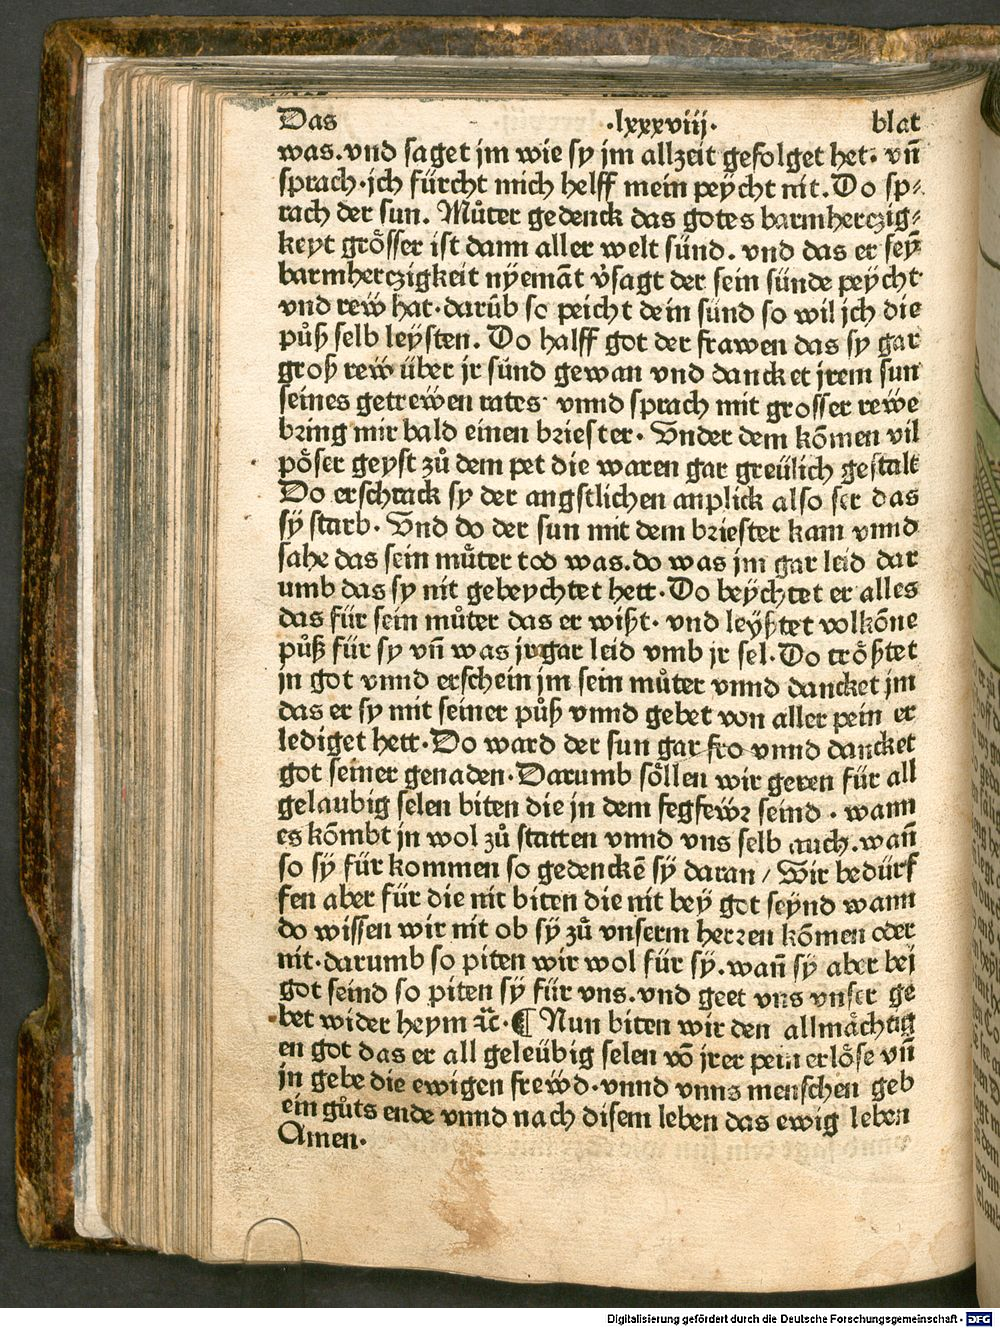 Das .lxxxviij. blat
was. vnd saget jm wie sy jm allzeit gefolget het. vñ
sprach. jch fürcht mich helff mein peÿcht nit. Do sp⸗
rach der sun. Můter gedenck das gotes barmherczig⸗
keyt grösser ist dann aller welt sünd. vnd das er seÿ
barmherczigkeit nÿemāt v̓sagt der sein sünde peÿcht
vnd rew̎ hat. darūb so peicht dein sünd so wil jch die
půß selb leÿsten. Do halff got der frawen das sy gar
groß rew̎ über jr sünd gewan vnd dancket jrem sun
seines getrew̎en rates. vnnd sprach mit grosser rew̎e
bring mir bald einen briester. Vnder dem kōmen vil
pöser geyst zů dem pet die waren gar greülich gestalt
Do erschrack sy der angstlichen anplick also ser das
sÿ starb. Vnd do der sun mit dem briester kam vnnd
sahe das sein můter tod was. do was jm gar leid dar
umb das sy nit gebeychtet hett. Do beÿchtet er alles
das für sein můter das er wißt. vnd leÿßtet volkōne
půß für sy vñ was jr gar leid vmb jr sel. Do trößtet
jn got vnnd erschein jm sein můter vnnd dancket jm
das er sy mit seiner půß vnnd gebet von aller pein er
lediget hett. Do ward der sun gar fro vnnd dancket
got seiner genaden. Darumb söllen wir geren für all
gelaubig selen biten die jn dem fegfew̎r seind. wann
es kōmbt jn wol zů statten vnnd vns selb auch. wañ
so sÿ für kommen so gedenckē sÿ daran / Wir bedürf
fen aber für die nit biten die nit beÿ got seÿnd wann
do wissen wir nit ob sÿ zů vnserm herren kōmen oder
nit. darumb so piten wir wol für sÿ. wañ sÿ aber bej
got seind so piten sÿ für vns. vnd geet vns vnser ge
bet wider heym ⁊c̄. ¶ Nun biten wir den allmächtig
en got das er all geleübig selen vō jrer pein erlöse vñ
jn gebe die ewigen frew̎d. vnnd vnns menschen geb
ein gůts ende vnnd nach disem leben das ewig leben
Amen.
Digitalisierung gefördert durch die Deutsche Forschungsgemeinschaft - DFG